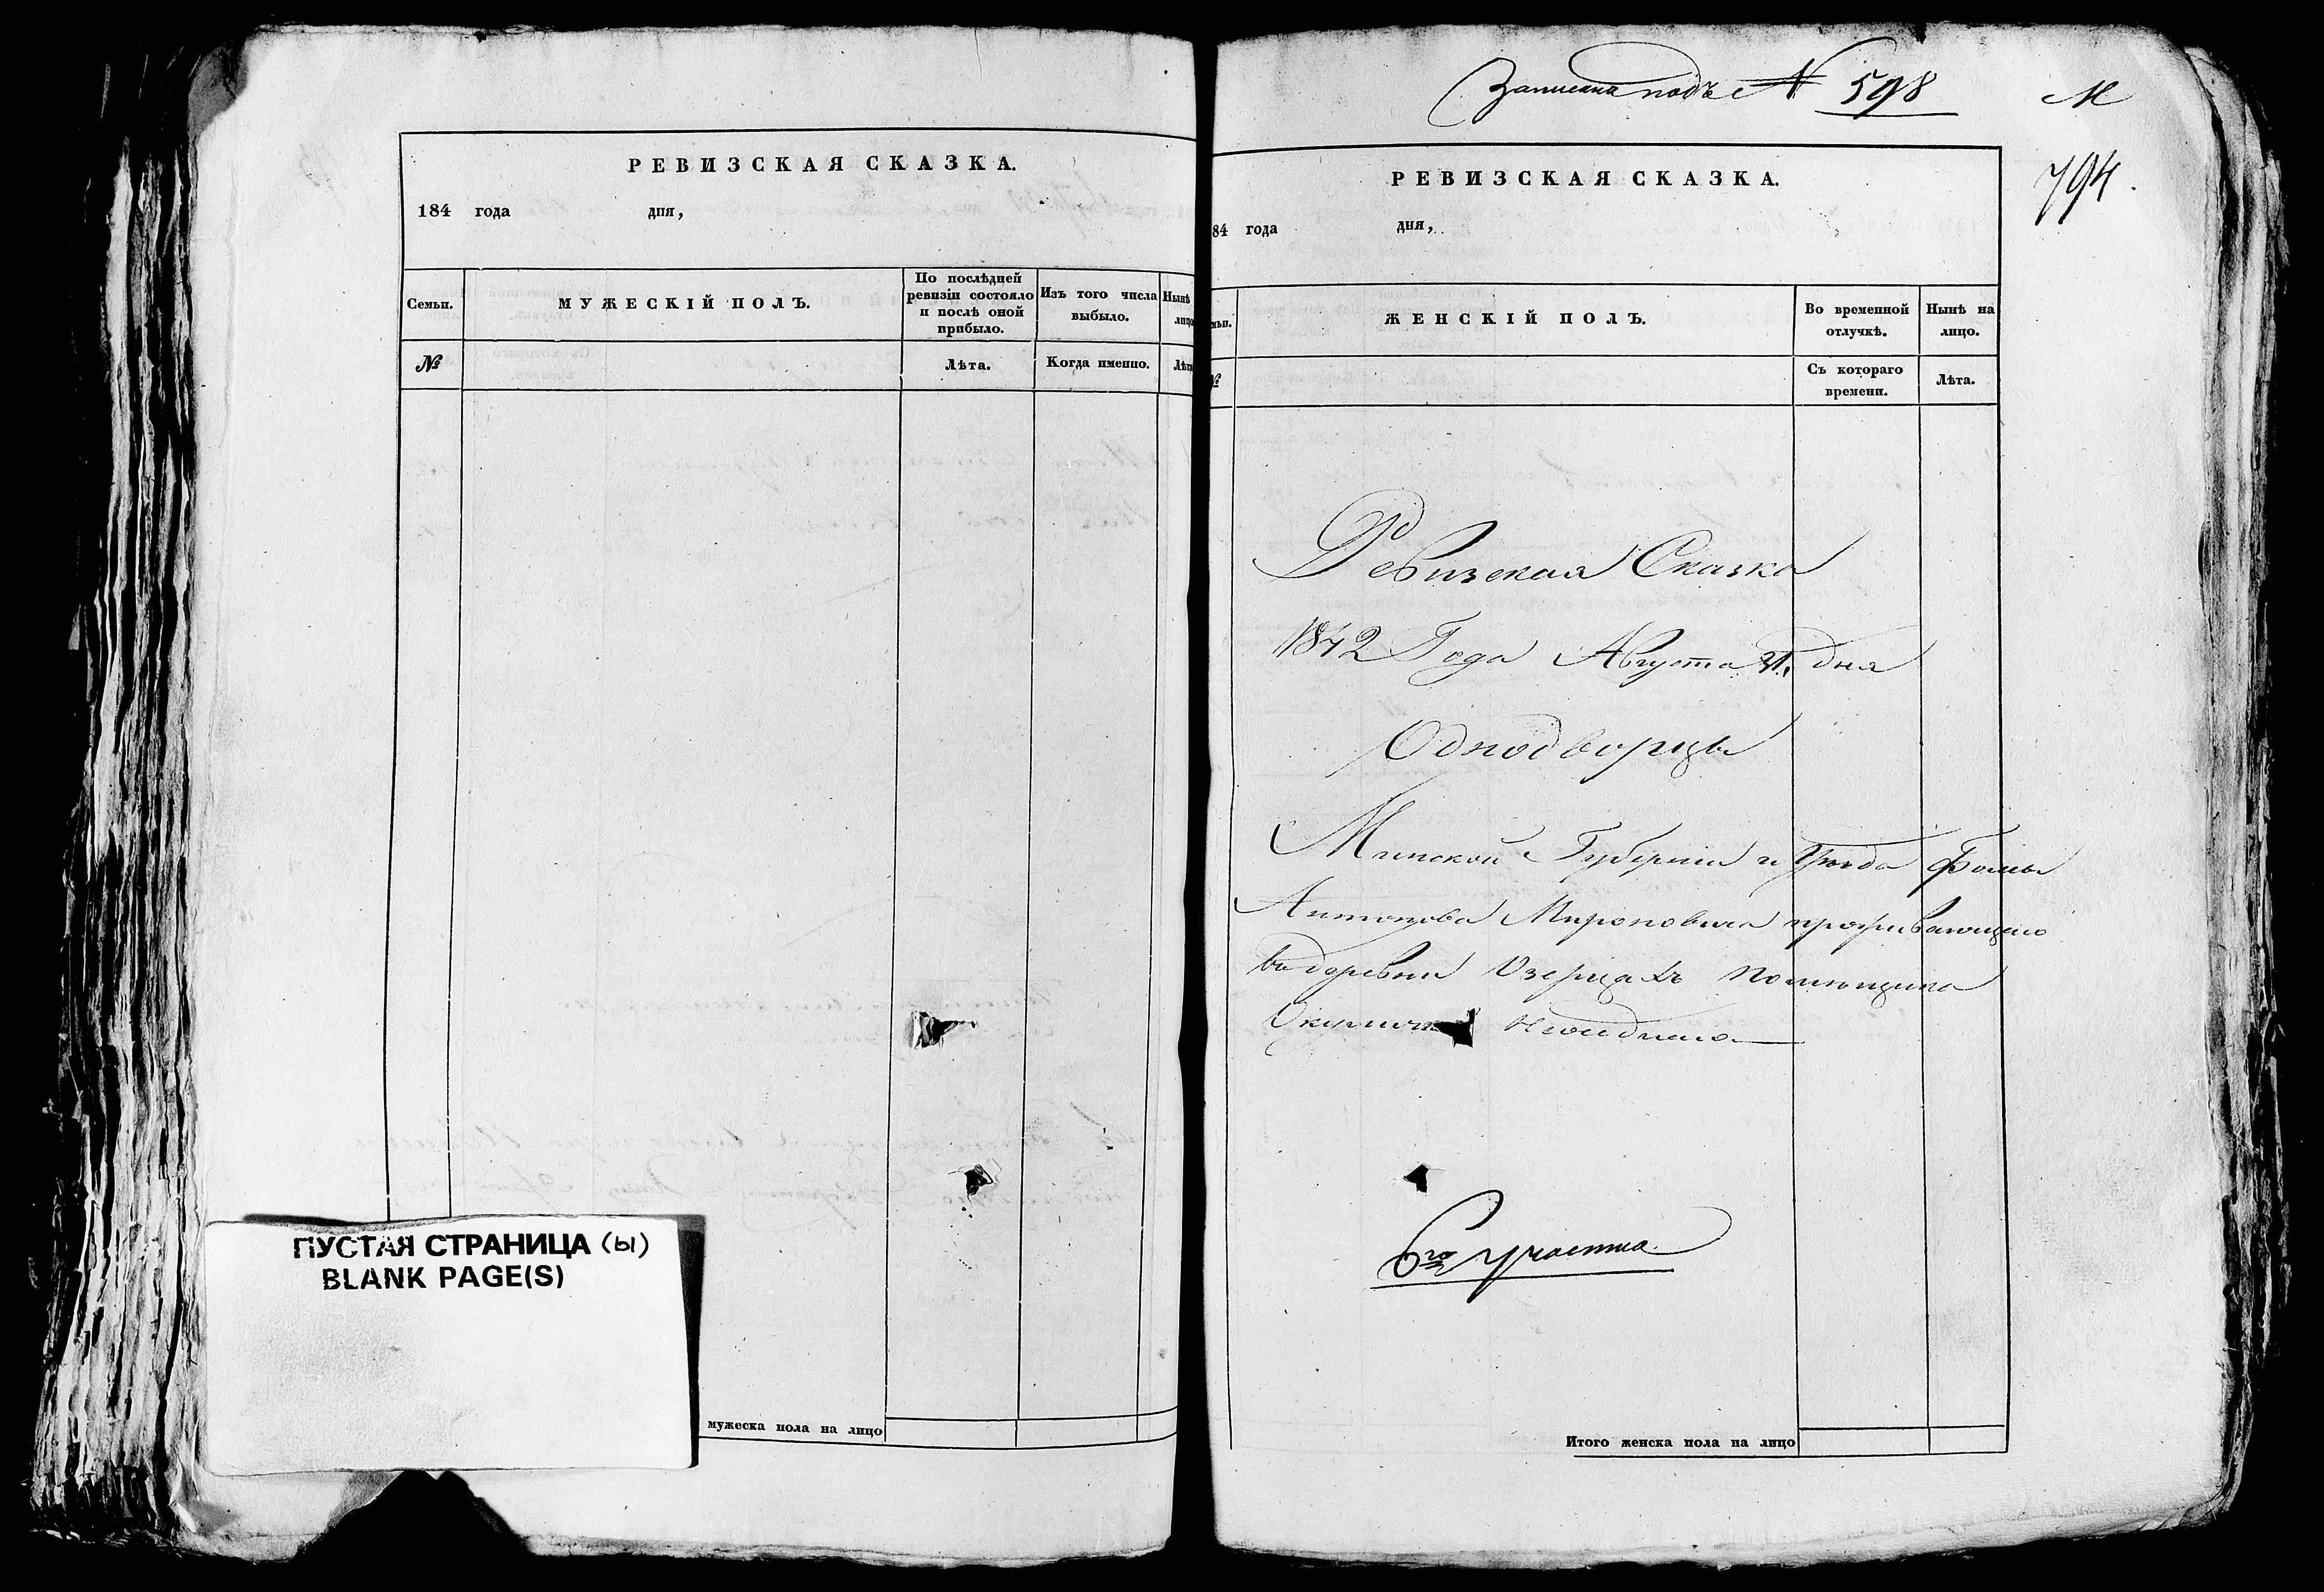 РЕВИЗСКАЯ СКАЗКА.
184 года дня,
Семьи.
МУЖЕСКІЙ ПОЛЪ.
По послѣдней ревизіи состояло и послѣ оной прибыло.
Изъ того числа выбыло.
Нынѣ
лицо
№
Лѣта.
Когда именно.
Лѣта
ПУСТАЯ СТРАНИЦА (ы)
BLANK PAGE(S)
мужеска пола на лицо
Записана подъ № 598
М
794.
РЕВИЗСКАЯ СКАЗКА.
84 года дня,
мьи.
ЖЕНСКІЙ ПОЛЪ.
Во временной отлучкѣ.
Нынѣ на лицо.
№
Съ котораго времени.
Лѣта.
Ревизская Сказка
1842 Года Августа 31. дня
Однодворца
Минской Губерніи и Уѣзда Фомы
Антонова Мироновича проживающаго
въ деревни Озерцахъ помѣщика
6го участка.
Итого женска пола на лицо